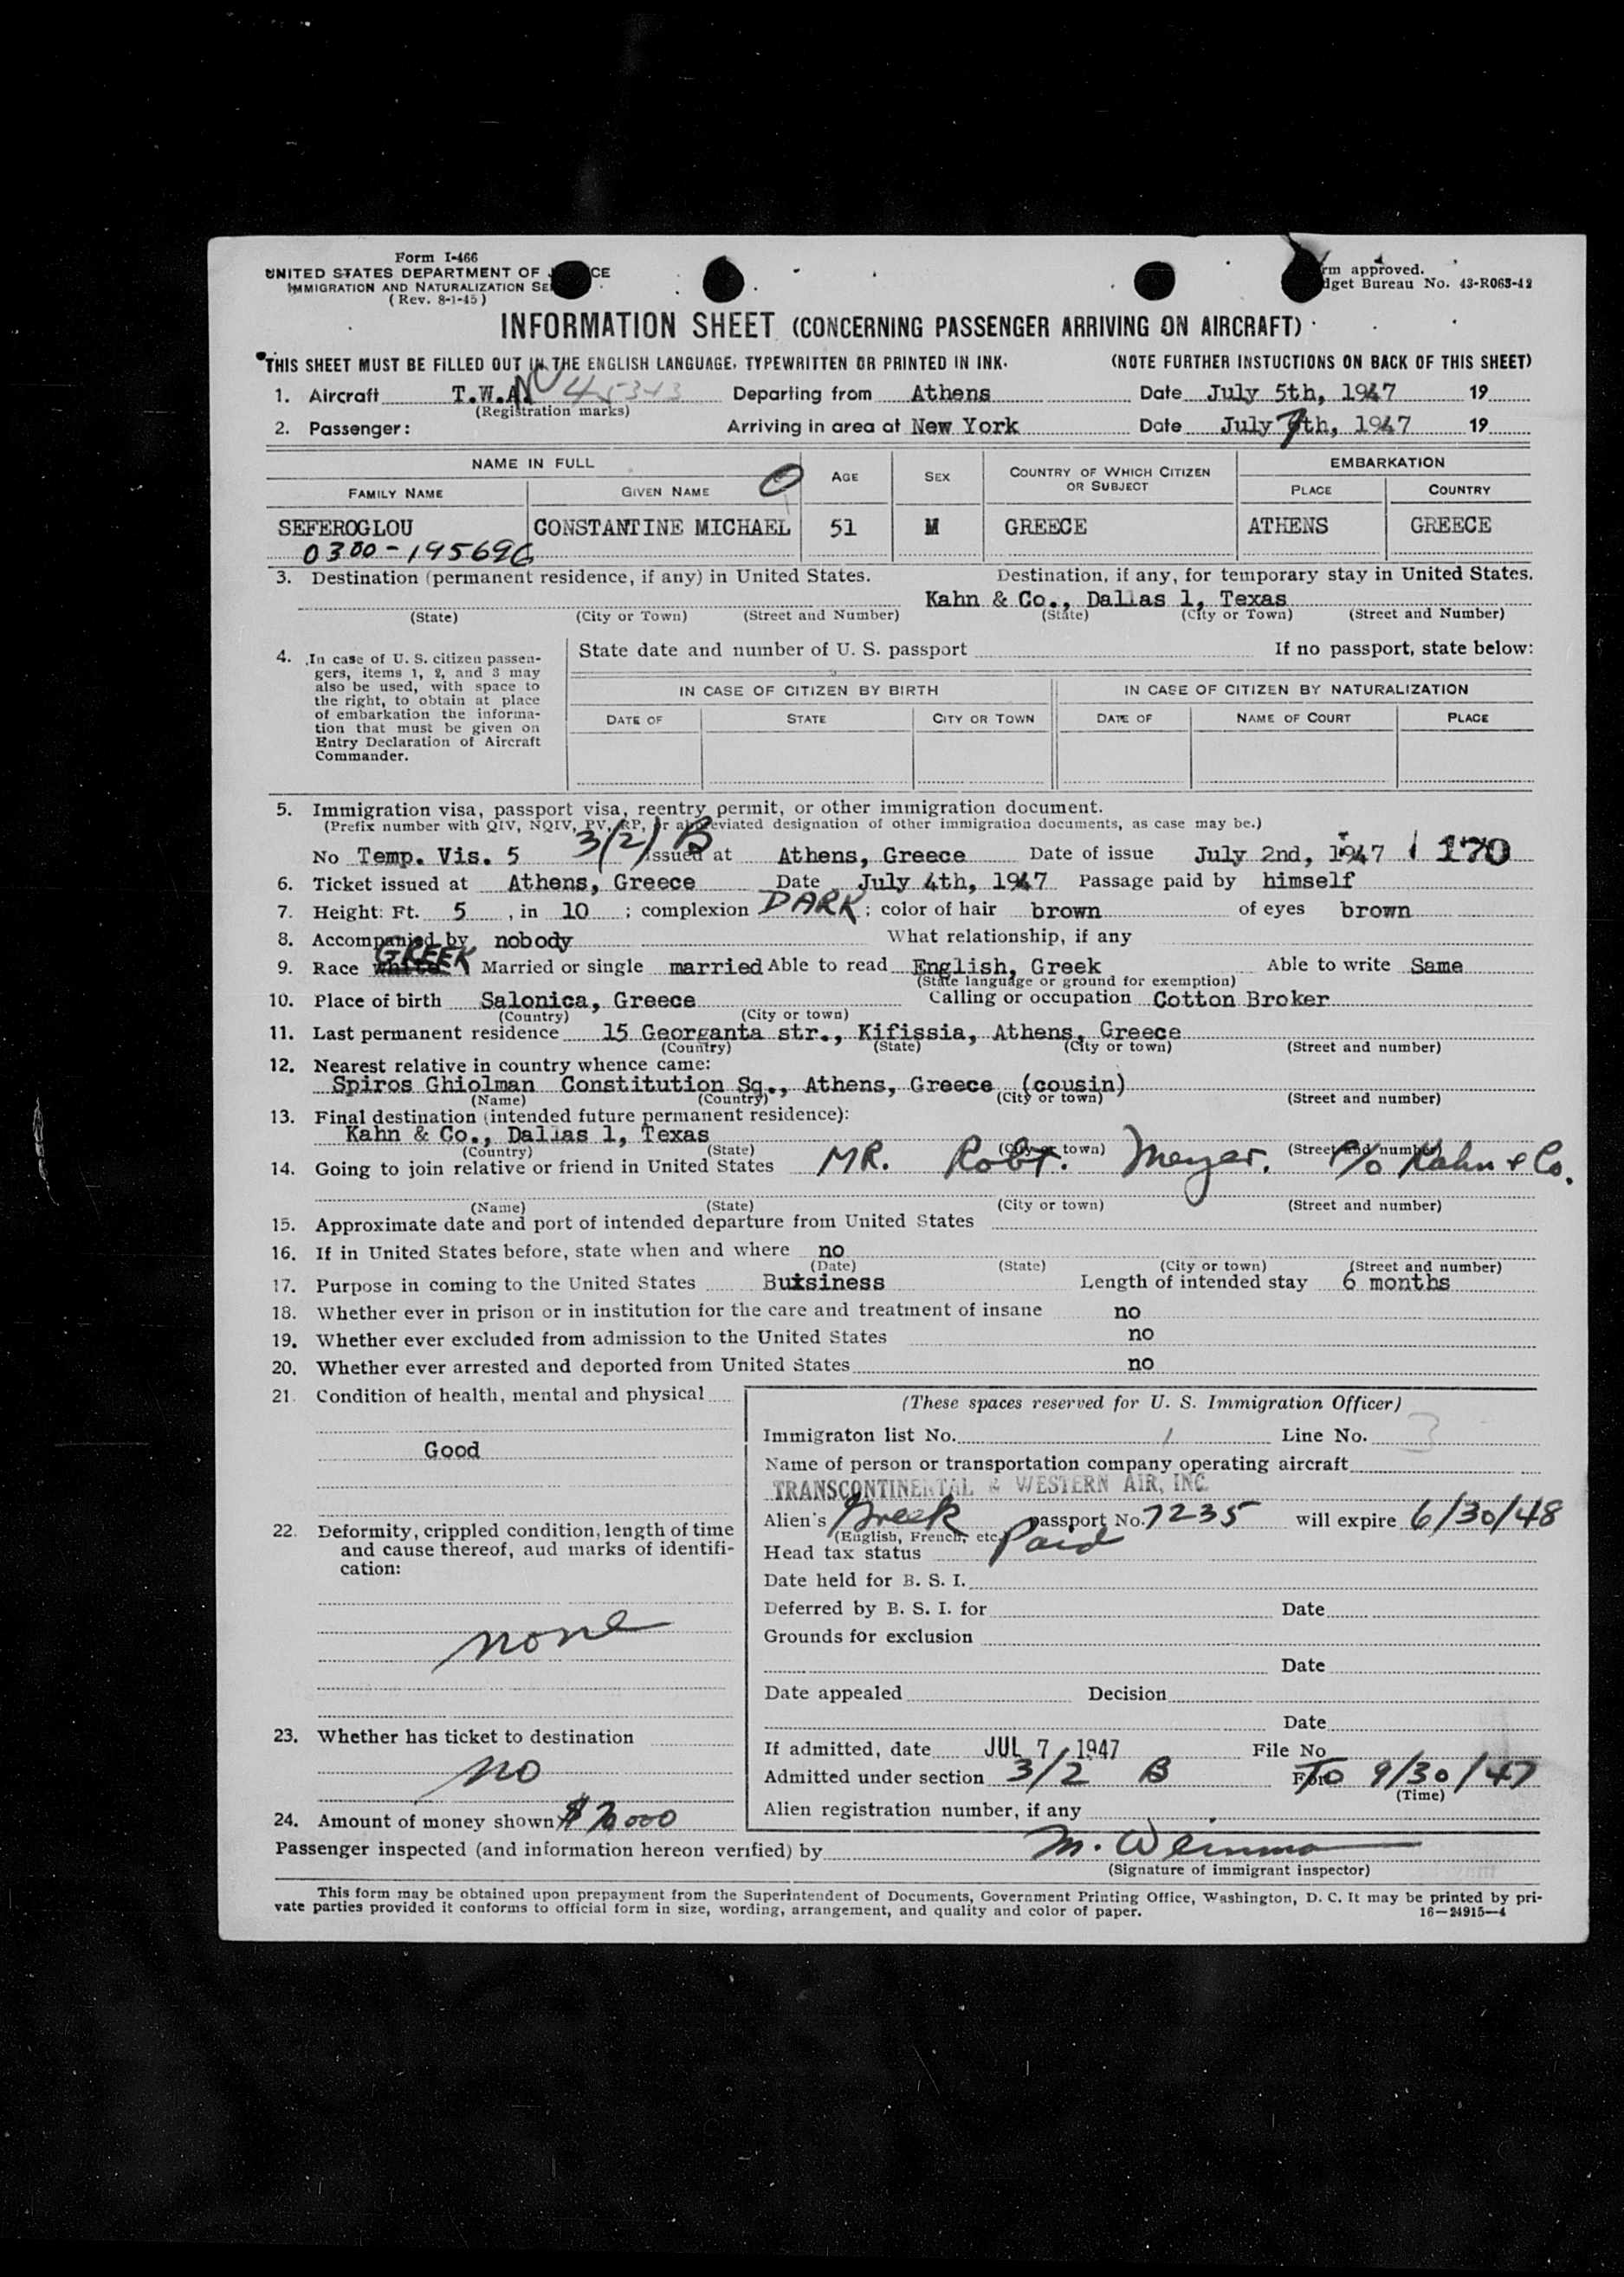 Form I-466
UNITED STATES DEPARTMENT OF
IMMIGRATION AND NATURALIZATION
(Rev. 8-1-45)
approved.
Bureau No. 43-R063-42
INFORMATION SHEET (CONCERNING PASSENGER ARRIVING ON AIRCRAFT)
THIS SHEET MUST BE FILLED OUT IN THE ENGLISH LANGUAGE, TYPEWRITTEN OR PRINTED IN INK. (NOTE FURTHER INSTUCTIONS ON BACK OF THIS SHEET)
1. Aircraft T.W.A. Departing from Athens Date July 5th, 1947 19
(Registration marks)
2. Passenger: Arriving in area at New York Date July 7th, 1947 19
NAME IN FULL AGE SEX COUNTRY OF WHICH CITIZEN OR SUBJECT EMBARKATION
FAMILY NAME GIVEN NAME PLACE COUNTRY
SEFEROGLOU CONSTANTINE MICHAEL 51 M GREECE ATHENS GREECE
0300-195696
3. Destination (permanent residence, if any) in United States. Destination, if any, for temporary stay in United States.
Kahn & Co., Dallas 1, Texas
(State) (City or Town) (Street and Number) (State) (City or Town) (Street and Number)
4. In case of U. S. citizen passen-
gers, items 1, 2, and 3 may
also be used, with space to
the right, to obtain at place
of embarkation the informa-
tion that must be given on
Entry Declaration of Aircraft
Commander.
State date and number of U. S. passport If no passport, state below:
IN CASE OF CITIZEN BY BIRTH IN CASE OF CITIZEN BY NATURALIZATION
DATE OF STATE CITY OR TOWN DATE OF NAME OF COURT PLACE
5. Immigration visa, passport visa, reentry permit, or other immigration document.
(Prefix number with QIV, NQIV, PV, RP, or abbreviated designation of other immigration documents, as case may be.)
No Temp. Vis. 5 3/2) B issued at Athens, Greece Date of issue July 2nd, 1947 170
6. Ticket issued at Athens, Greece Date July 4th, 1947 Passage paid by himself
7. Height: Ft. 5 , in 10 ; complexion DARK ; color of hair brown of eyes brown
8. Accompanied by nobody What relationship, if any
9. Race white GREEK Married or single married Able to read English, Greek Able to write Same
(State language or ground for exemption)
10. Place of birth Salonica, Greece Calling or occupation Cotton Broker
(Country) (City or town)
11. Last permanent residence 15 Georganta str., Kifissia, Athens, Greece
(Country) (State) (City or town) (Street and number)
12. Nearest relative in country whence came:
Spiros Ghiolman Constitution Sq., Athens, Greece (cousin)
(Name) (Country) (City or town) (Street and number)
13. Final destination (intended future permanent residence):
Kahn & Co., Dallas 1, Texas
(Country) (State) (City or town) (Street and number)
14. Going to join relative or friend in United States MR. Robt. Meyer. c/o Kahn & Co.
(Name) (State) (City or town) (Street and number)
15. Approximate date and port of intended departure from United States
16. If in United States before, state when and where no
(Date) (State) (City or town) (Street and number)
17. Purpose in coming to the United States Buisiness Length of intended stay 6 months
18. Whether ever in prison or in institution for the care and treatment of insane no
19. Whether ever excluded from admission to the United States no
20. Whether ever arrested and deported from United States no
21. Condition of health, mental and physical
Good
22. Deformity, crippled condition, length of time
and cause thereof, aud marks of identifi-
cation:
none
23. Whether has ticket to destination
no
24. Amount of money shown
(These spaces reserved for U. S. Immigration Officer)
Immigraton list No. 1 Line No. 3
Name of person or transportation company operating aircraft
TRANSCONTINENTAL & WESTERN AIR, INC.
Alien's Greek passport No. 7235 will expire 6/30/48
(English, French, etc.)
Head tax status Paid
Date held for B. S. I.
Deferred by B. S. I. for Date
Grounds for exclusion
Date
Date appealed Decision
Date
If admitted, date JUL 7 1947 File No
Admitted under section 3/2 B For To 9/30/47
(Time)
Alien registration number, if any
Passenger inspected (and information hereon verified) by M.
(Signature of immigrant inspector)
This form may be obtained upon prepayment from the Superintendent of Documents, Government Printing Office, Washington, D. C. It may be printed by pri-
vate parties provided it conforms to official form in size, wording, arrangement, and quality and color of paper. 16—24915—4